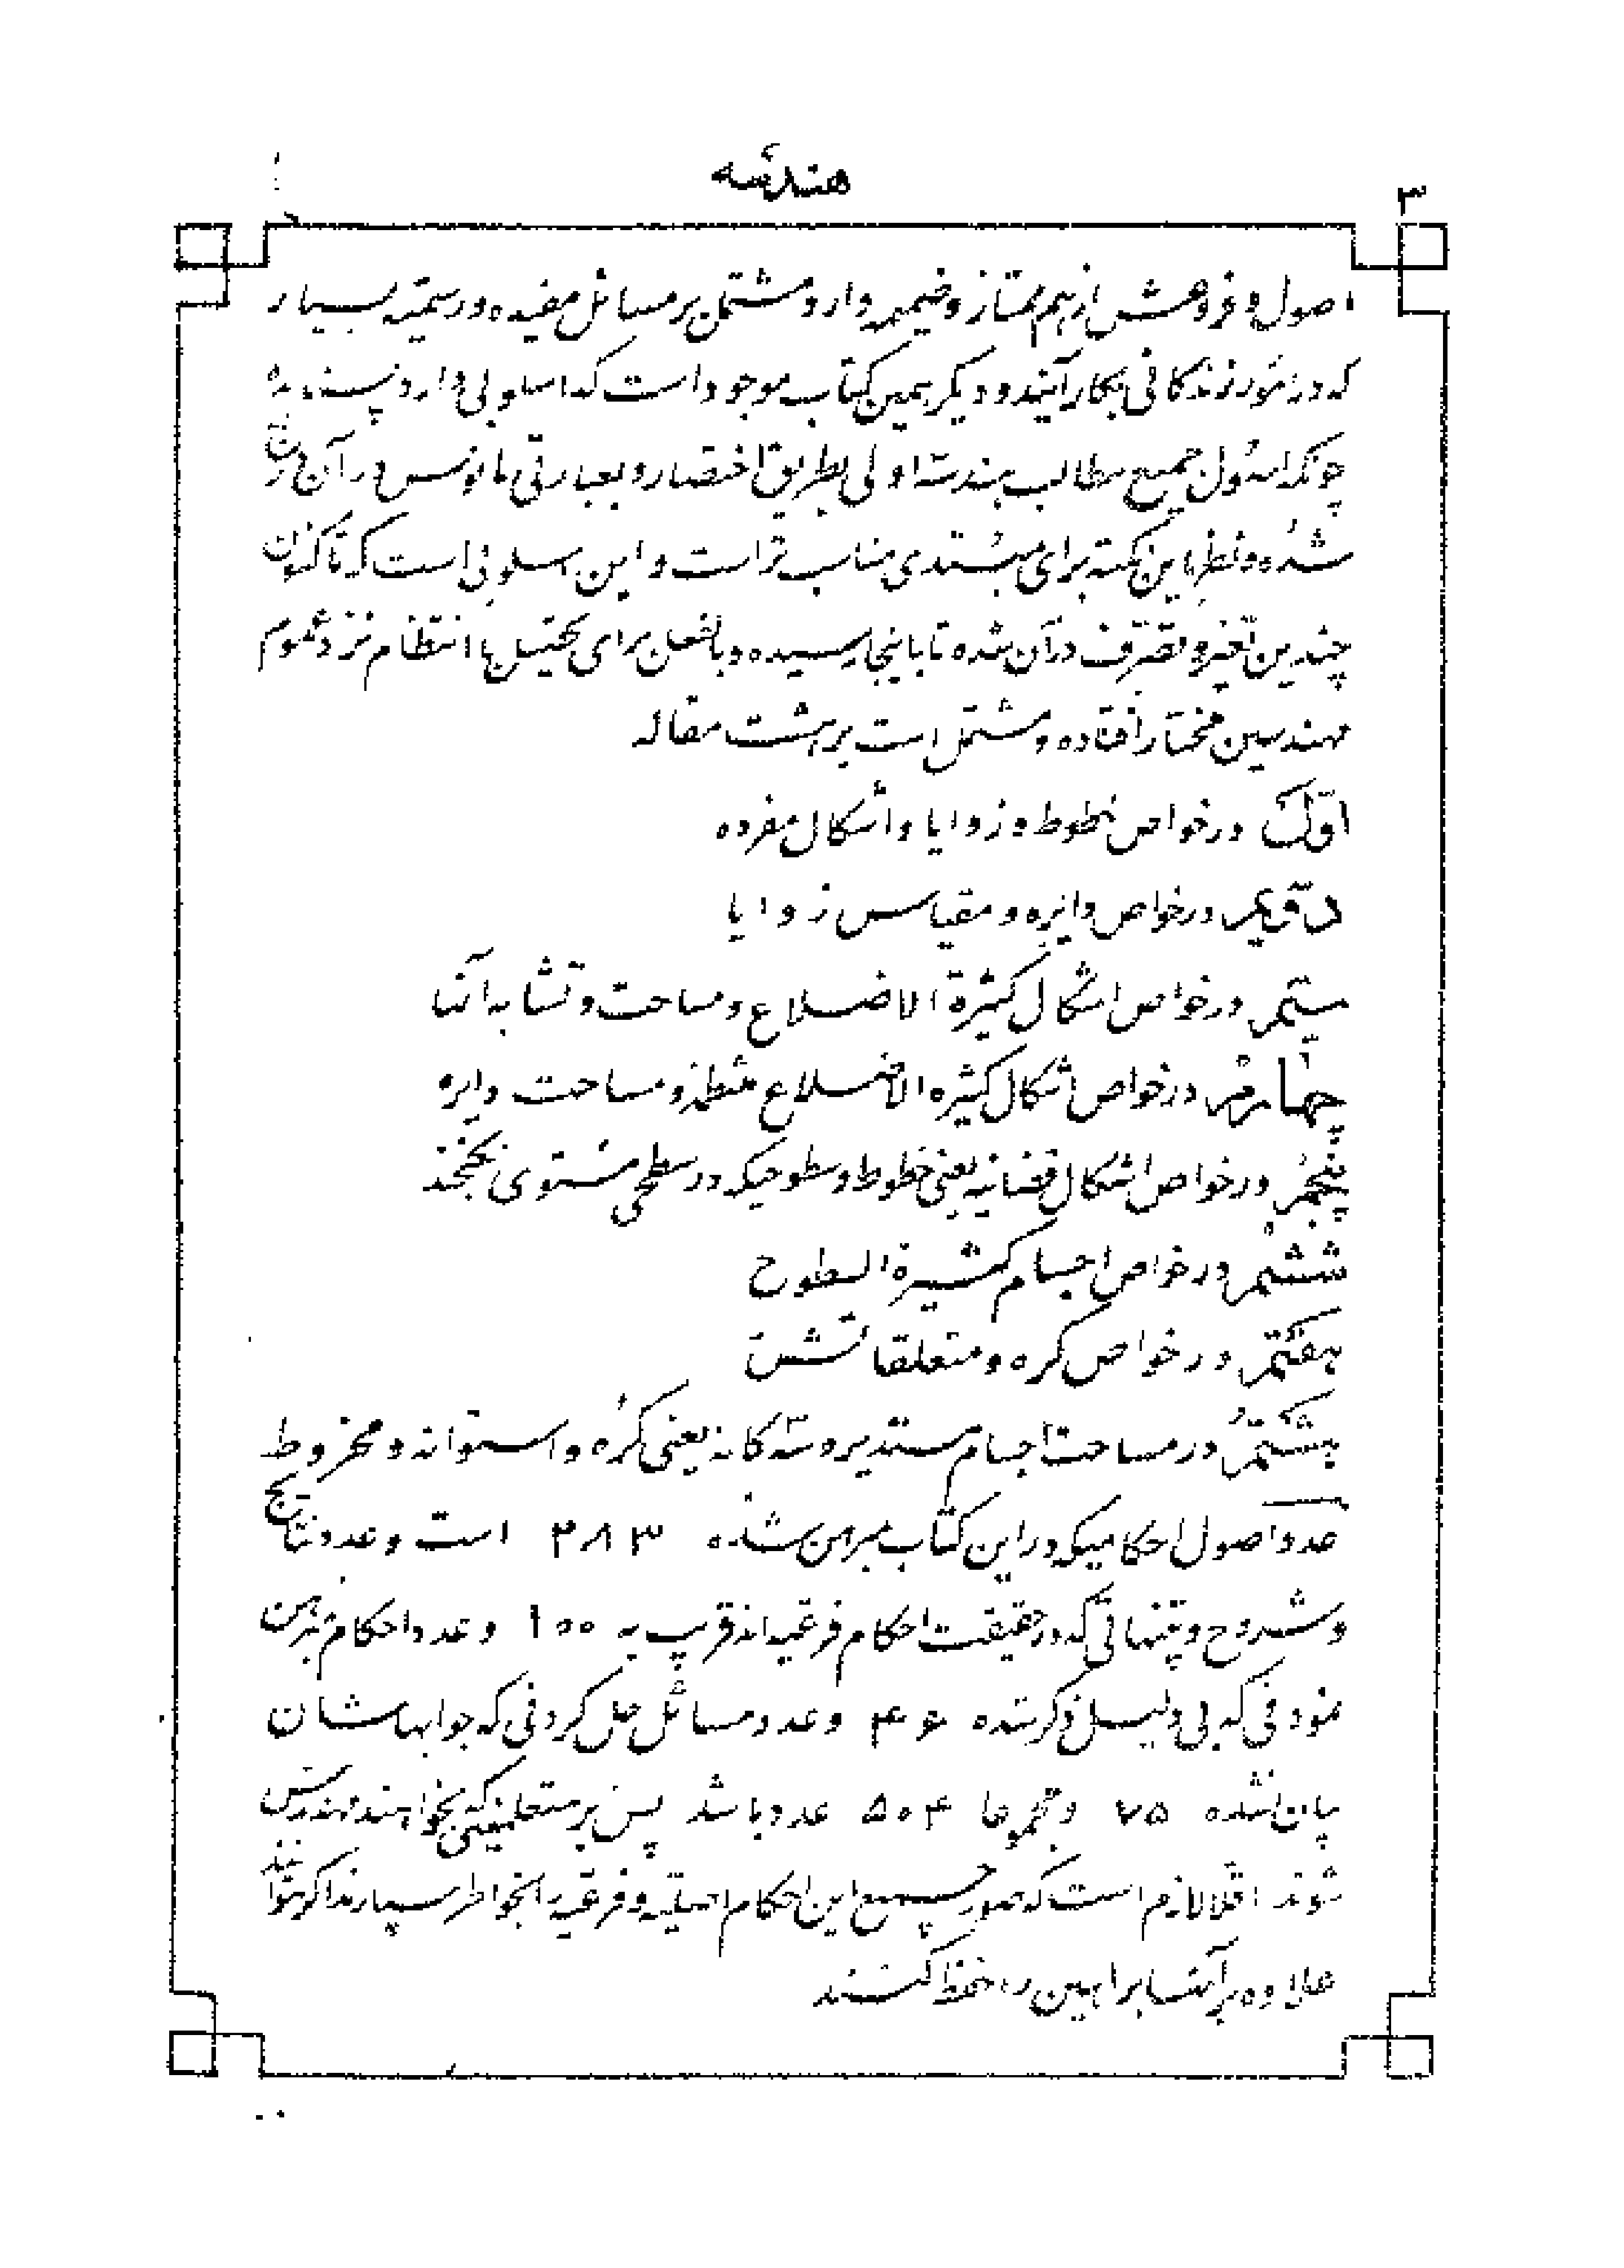 هندسه
۳
اصول و فروعش از هم ممتاز و ضمیمه دارد مشتمل بر مسائل مفیده و رسمیّه بسیار
که در امور زندگانی بکار آیند و دیگر همین کتاب موجود است که اسلوبی دارد پسندیده
چونکه اصول جمیع مطالب هندسه اولی بطریق اختصار و بعبارتی مانوس در آن درج
شده و نظر باین نکته برای مبتدی مناسب تر است و این اسلوبی است که تاکنون
چندین تغییر و تصرّف در آن شده تا باینجا رسیده و بالفعل برای تحصیل با انتظام نزد عموم
مهندسین مختار افتاده و مشتمل است بر هشت مقاله
اوّل در خواص خطوط و زوایا و اشکال مفرده
دوّیم در خواص دایره و مقیاس زوایا
سیّم در خواص اشکال کثیرة الاضلاع و مساحت و تشابه آنها
چهارم در خواص اشکال کثیره الاضلاع منتظمه و مساحت دایره
پنجم در خواص اشکال فضائیه یعنی خطوط و سطوحیکه در سطحی مستوی نگنجند
ششم در خواص اجسام کثیرة السطوح
هفتم در خواص کره و متعلقاتش
هشتم در مساحت اجسام مستدیره سه گانه یعنی کره و استوانه و مخروط
عدد اصول احکامیکه در این کتاب مبرهن شده ۲۸۳ است و عدد نتایج
و شروح و تنبیهاتی که در حقیقت احکام فرعیه اند قریب به ۱۰۰ و عدد احکام مبرهن
نمودنی که بی دلیل ذکر شده ۴۶ و عدد مسائل حل کردنی که جوابهاشان
بیان نشده ۷۵ و مجموعا ۵۰۴ عدد باشد پس بر متعلمینی که بخواهند مهندس
شوند اقلا لازم است که صور جمیع این احکام اصلیّه و فرعیّه را بخواطر سپارند اگر نتوانند
علاوه بر آنها براهین را حفظ کنند